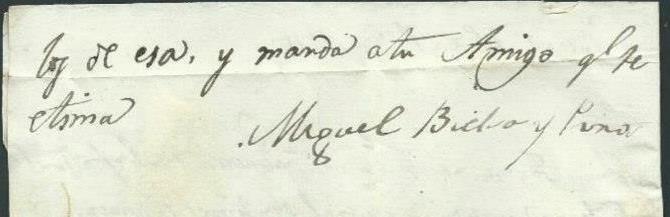 los de esa, y manda a tu Amigo q.l te
etima
Miguel Bicho y